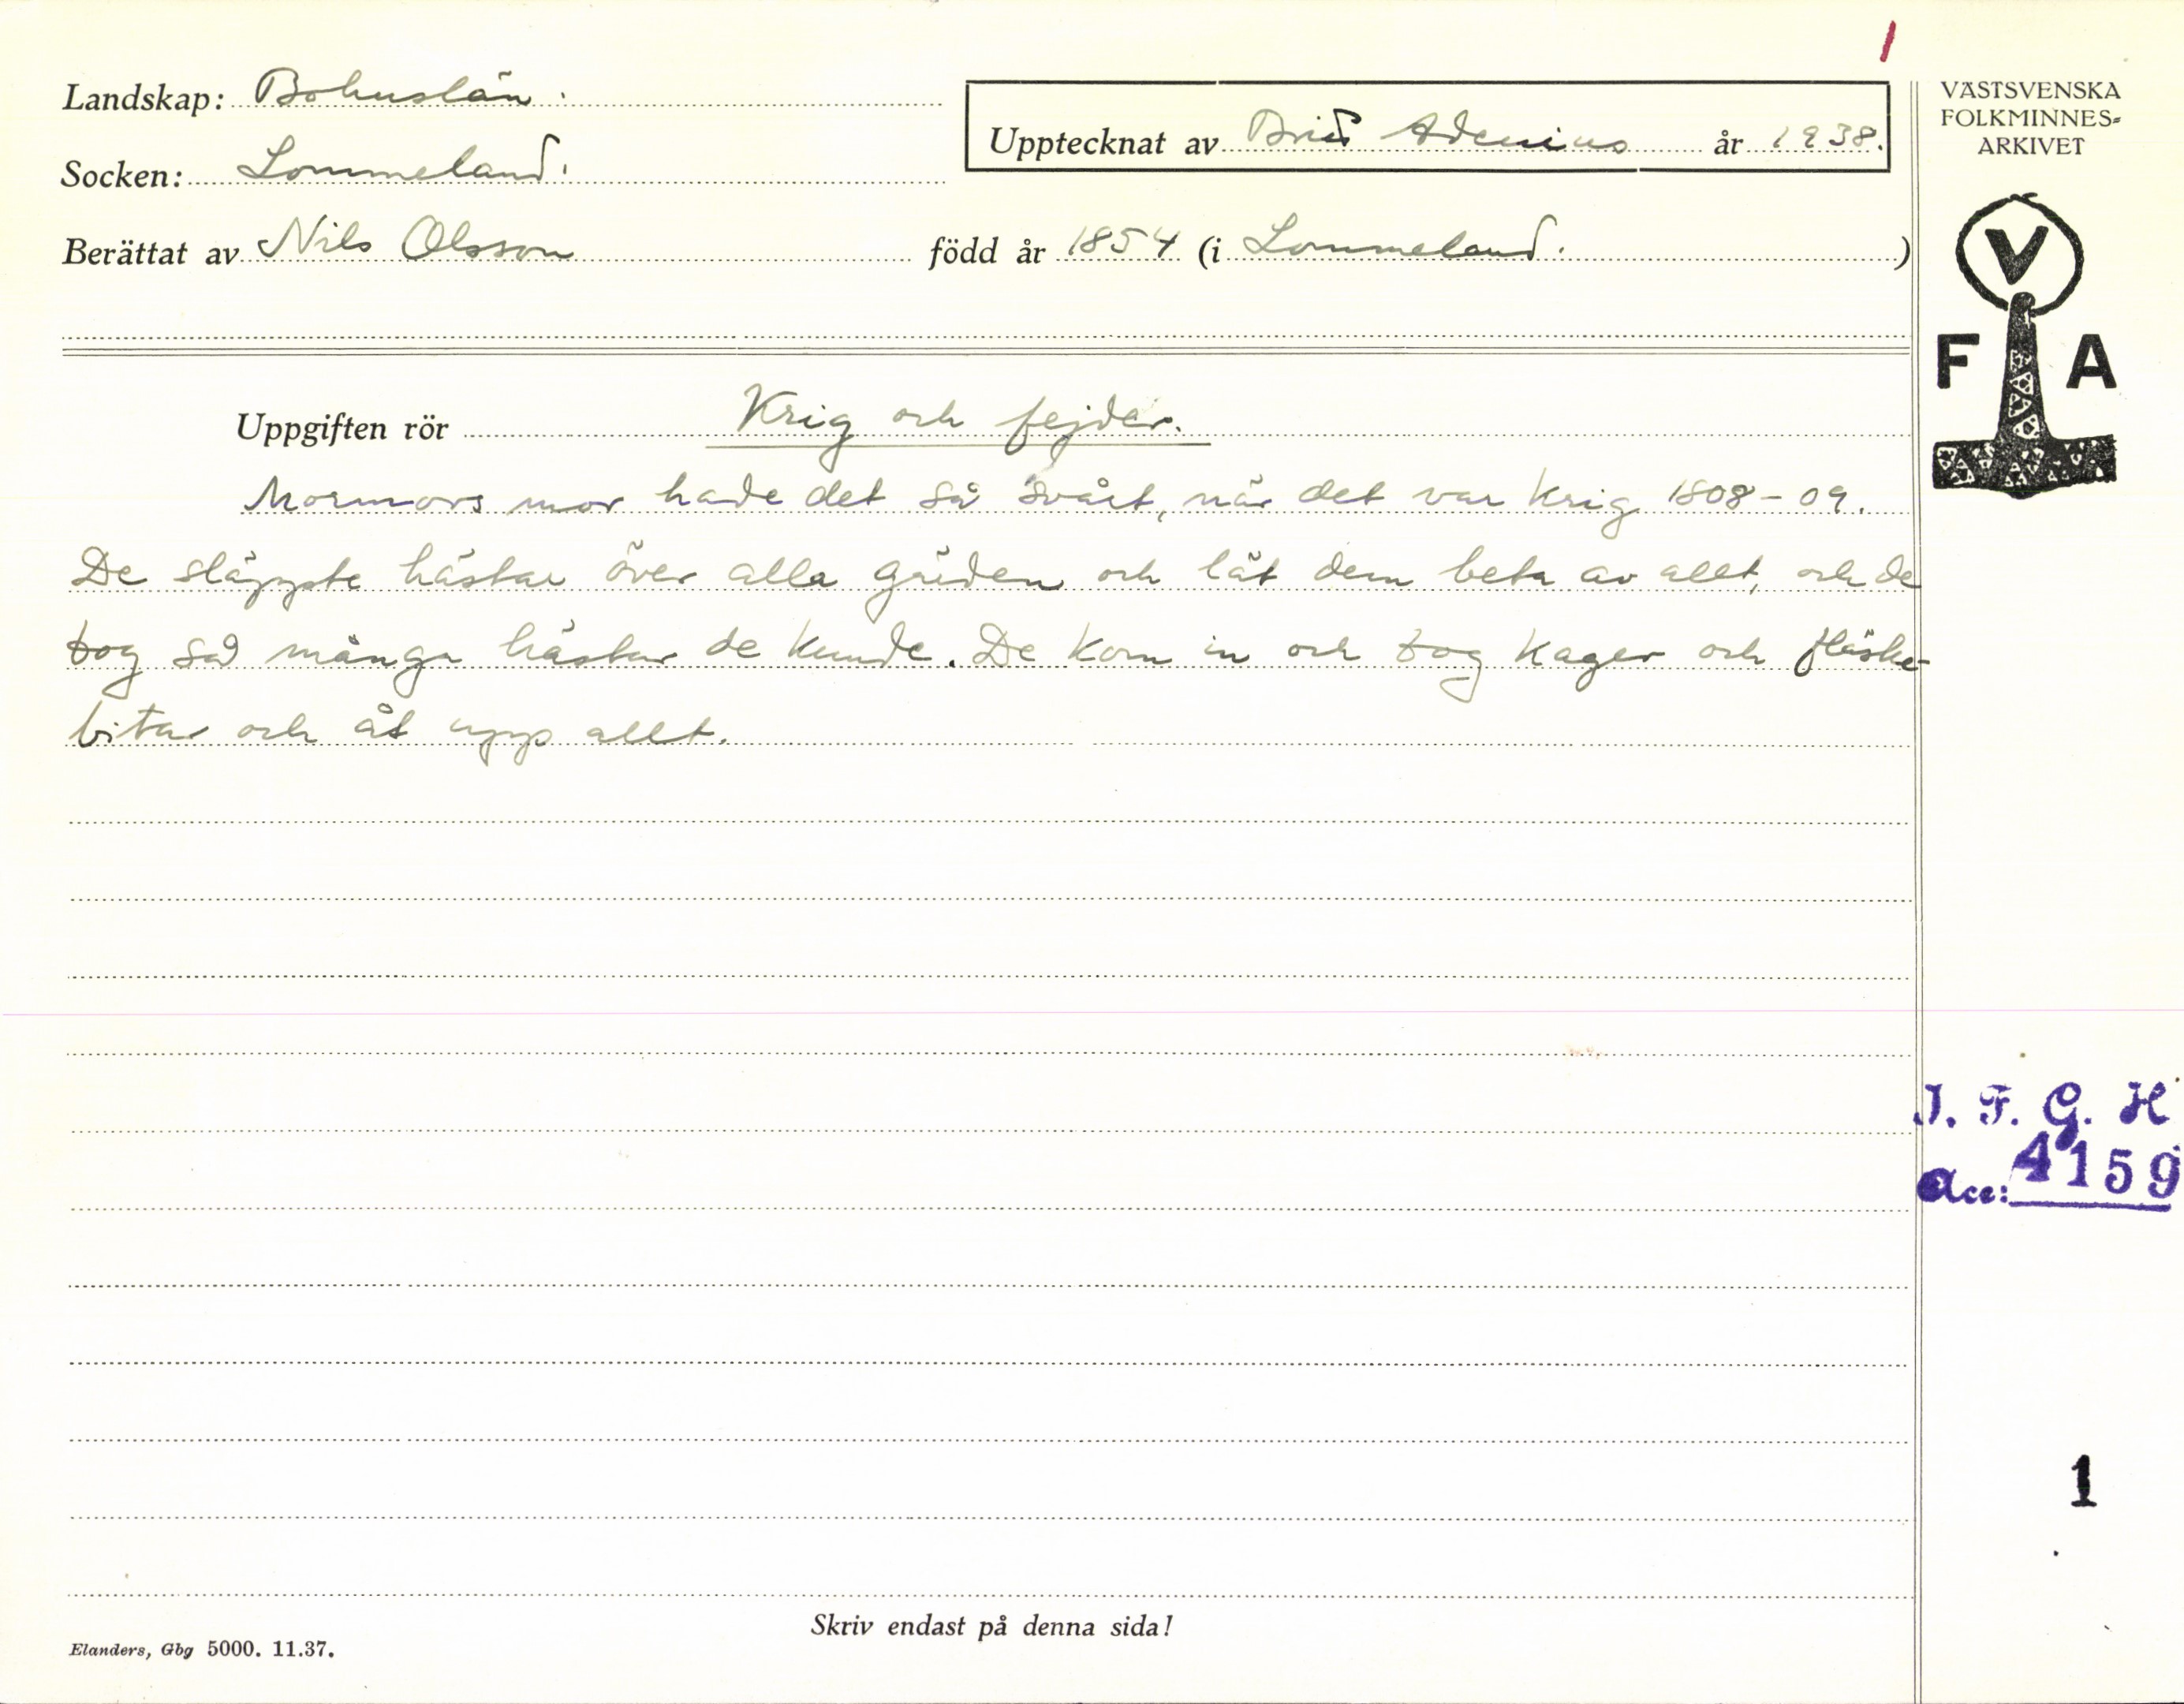 1
Landskap: Bohuslän.
Socken: Lommeland.
Upptecknat av Brit Adenius år 1938.
Berättat av Nils Olsson född år 1854 (i Lommeland.)
VÄSTSVENSKA
FOLKMINNES=
ARKIVET
V
F A
Uppgiften rör Krig och fejder.
Mormors mor hade det så svårt, när det var krig 1808-09.
De släppte hästar över alla gärden och lät dem beta av allt, och de
tog så många hästar de kunde. De kom in och tog kager och fläske-
bitar och åt upp allt.
I. F. G. H
Acc: 4159
1
Skriv endast på denna sida!
Elanders, Gbg 5000. 11.37.